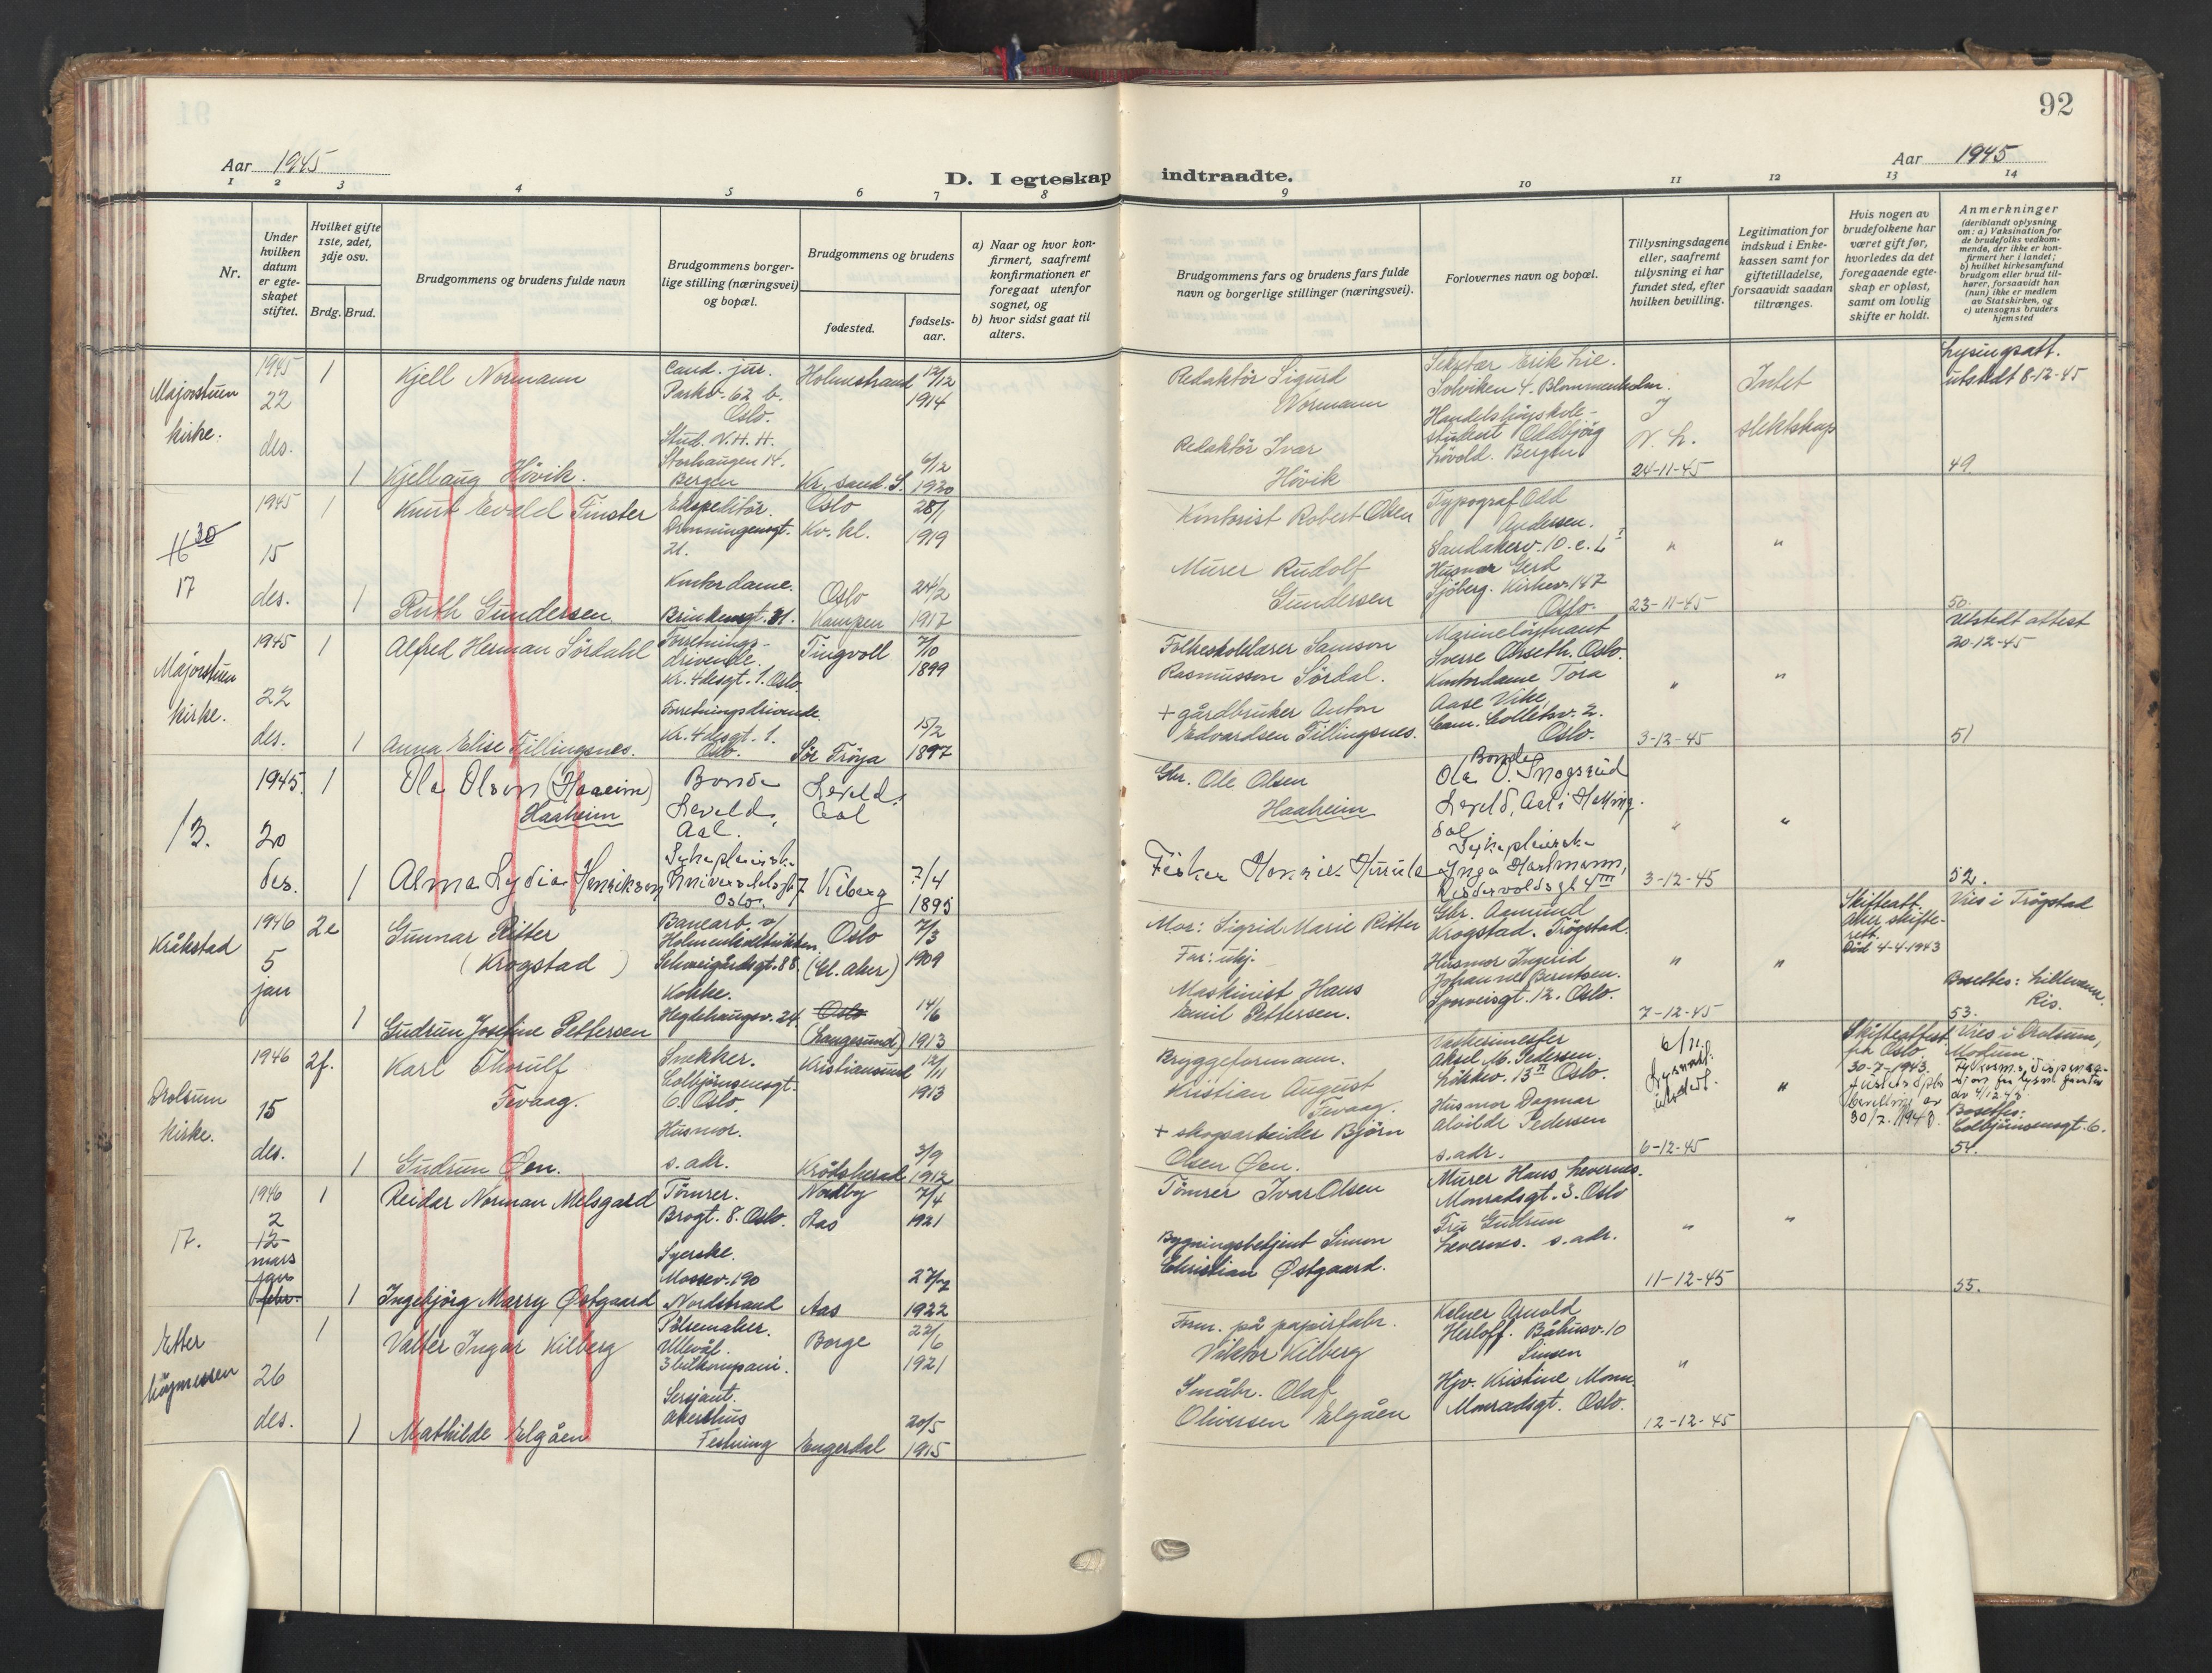 92
Aar 1945
D. I egteskap indtraadte.
Aar 1945
1 2 3 4 5 6 7 8 9 10 11 12 13 14
Nr.
Under hvilken datum er egte-skapet stiftet.
Hvilket gifte 1ste, 2det, 3dje osv.
Brdg. Brud.
Brudgommens og brudens fulde navn
Brudgommens borger-lige stilling (næringsvei) og bopæl.
Brudgommens og brudens
fødested.
fødsels-aar.
a) Naar og hvor kon-firmert, saafremt konfirmationen er foregaat utenfor sognet, og
b) hvor sidst gaat til alters.
Brudgommens fars og brudens fars fulde navn og borgerlige stillinger (næringsvei).
Forlovernes navn og bopæl.
Tillysningsdagene eller, saafremt tillysning ei har fundet sted, efter hvilken bevilling.
Legitimation for indskud i Enke-kassen samt for giftetilladelse, forsaavidt saadan tiltrænges.
Hvis nogen av brudefolkene har været gift før, hvorledes da det foregaaende egte-skap er opløst, samt om lovlig skifte er holdt.
Anmerkninger
(deriblandt oplysning om: a) Vaksination for de brudefolks vedkom-mende, der ikke er kon-firmert her i landet; b) hvilket kirkesamfund brudgom eller brud til-hører, forsaavidt han (hun) ikke er medlem av Statskirken, og c) utensogns bruders hjemsted
Majorstuen kirke.
1945 22 des.
1 Kjell Normann
Cand. jur. Parkv. 62 b. Oslo.
Holmestrand 12/12 1914
Redaktör Sigurd Normann
Sekretær Erik Lie. Solviken 4. Blommenholm.
Intet slektskap
Lysingsatt. utstedt 8-12-45
1 Kjellaug Hövik.
Stud. N.H.H. Storhaugen 14. Bergen
Kr.sand.S. 6/12 1920
Redaktör Ivar Hövik
Handelshögskole-student Oddbjörg Lövold. Bergen
N. h. 24-11-45
49.
17
1945 15 des.
1 Knut Evald Finster
Ekspeditör. Dronningensgt. 21.
Oslo Kv. kl. 28/1 1919
Kontorist Robert Olsen
Typograf Odd Andersen. Sandakerv. 10.
1 Ruth Gundersen
Kontordame. Brinkensgt. 31.
Oslo Kampen 24/2 1917
Murer Rudolf Gundersen
Husmor Gerd Sjöberg. Kirkev. 147 Oslo.
23-11-45
50.
Majorstuen kirke.
1945 22 des.
1 Alfred Herman Sördahl
Forretnings-drivende. Kr. 4desgt. 1. Oslo.
Tingvoll 7/10 1899
Folkeskolelærer Samson Rasmussen Sördal.
Marinelöytnant Sverre Aarseth. Oslo.
Utstedt attest 20-12-45
1 Anna Elise Fillingsnes.
Forretningsdrivende. Kr. 4desgt. 1. Oslo.
Sör Fröya 15/2 1897
+ gårdbruker Anton Edvardsen Fillingsnes.
Kontordame Tora Aase Vike, Cam. Colletsv. 2. Oslo.
3-12-45
51
13.
1945. 20 des.
1 Ola Olsen (Haaeim) Haaheim
Bonde Leveld, Aal.
Leveld, Aal
Gbr. Ole Olsen Haaheim
Bonde Ola O. Snogsrud Leveld, Aal i Halling-dal
1 Alma Lydia Henriksen
Sykepleierske Universitetsgt 7 Oslo.
Kiberg 7/4 1895
Fisker Henrik
Sykepleierske Inga Hartmann,
3-12-45
52.
Kråkstad
1946 5 jan
2e Gunnar Ritter (Krogstad)
Banearb. v/ Schweigårdsgt. 88.
Oslo (Gl. Aker) 7/3 1909
Mor: Sigrid Marie Ritter
Far: ukj.
Gbr. Aamund Krogstad. Trögstad.
Skifteatt. Aker skifte-rett. Död 4-4-1943
Vies i Trögstad
1 Gudrun Josefine Pettersen
Kokke. Hegdehaugsv. 24.
Oslo (Langesund) 14/6 1913
Maskinist Hans Emil Pettersen.
Husmor Ingrid Johanne Berntsen. Sporveisgt. 12. Oslo.
7-12-45
Bosettes: Ris.
53.
Drolsum kirke.
1946 15 des.
2f. Karl Thorulf Fevaag.
Snekker. Colbjörnsensgt. 6. Oslo.
Kristiansund 12/11 1913
Bryggeformann. Kristian August Fevaag.
Aksel M. Pedersen. Lökkev. 13 II Oslo.
Skifteattest fra Oslo 30-7-1943.
Vies i Drolsum, Modum.
1 Gudrun Öen.
Husmor. s. adr.
Krödsherad 3/9 1912
+ skogsarbeider Björn Olsen Öen.
Husmor Dagmar Alvilde Pedersen s. adr.
6-12-45
Bosettes: Colbjörnsensgt. 6.
54.
17.
1946 2 12 mars jan febr.
1 Reidar Norman Melsgard
Tömrer. Brogt. 8. Oslo.
Nordby Aas 7/4 1921
Tömrer Ivar Olsen
Murer Hans Levernes. Monradsgt. 3. Oslo
1 Ingebjörg Marry Østgaard
Syerske. Mossev. 190 Nordstrand
Aas 27/7 1922
Bygningsbetjent Simon Christian Østgaard.
Fru Gudrun Levernes. s. adr.
11-12-45
55.
Etter högmessen
26 des.
1 Valter Ingar Kilberg
Pölsemaker. Ullevål.
Borge 22/6 1921
Form. på papirfabr. Viktor Kilberg
Kelner Arnold Herloff. Båhusv. 10 Sinsen
1 Mathilde Elgåen
Sersjant. Akershus Festning
Engerdal 20/5 1915
Småbr. Olaf Oliversen Elgåen
Hjv. Kristine Moen. Monradsgt. Oslo.
12-12-45